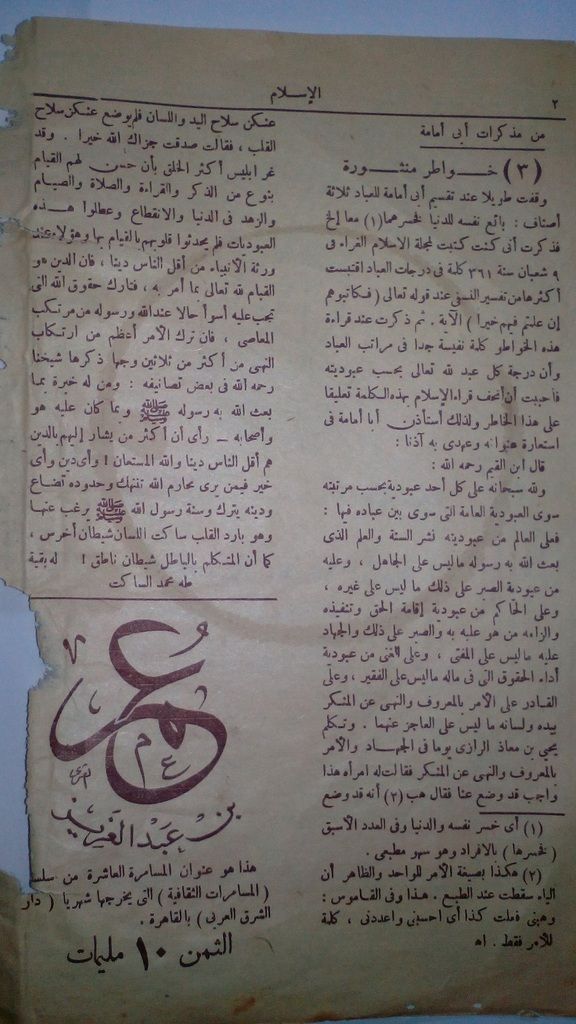 ٢
الإسلام
من مذكرات أبى أمامة
(٣) خواطر منثورة
وقفت طويلا عند تقسيم أبى أمامة للعباد ثلاثة
أصناف : بائع نفسه للدنيا فخسرهما(١) معا إلخ
فذكرت أنى كنت كتبت لمجلة الاسلام الغراء فى
٩ شعبان سنة ٣٦١ كلمة فى درجات العباد اقتبست
أكثرها من تفسير النسفى عند قوله تعالى (فكاتبوهم
إن علمتم فيهم خيرا) الآية . ثم ذكرت عند قراءة
هذه الخواطر كلمة نفيسة جدا فى مراتب العباد
وأن درجة كل عبد لله تعالى بحسب عبوديته
فأحببت أن أتحف قراء الإسلام بهذه الكلمة تعليقا
على هذا الخاطر ولذلك أستأذن أبا أمامة فى
استعارة عنوانه وعهدى به آذنا :
قال ابن القيم رحمه الله :
ولله سبحانه على كل أحد عبودية بحسب مرتبته
سوى العبودية العامة التى سوى بين عباده فيها :
فعلى العالم من عبوديته نشر السنة والعلم الذى
بعث الله به رسوله ما ليس على الجاهل ، وعليه
من عبودية الصبر على ذلك ما ليس على غيره ،
وعلى الحاكم من عبودية إقامة الحق وتنفيذه
والزامه من هو عليه به والصبر على ذلك والجهاد
عليه ما ليس على المفتى ، وعلى الغنى من عبودية
أداء الحقوق التى فى ماله ما ليس على الفقير ، وعلى
القادر على الأمر بالمعروف والنهى عن المنكر
بيده ولسانه ما ليس على العاجز عنهما . وتكلم
يحيى بن معاذ الرازى يوما فى الجهاد والأمر
بالمعروف والنهى عن المنكر فقالت له امرأة هذا
واجب قد وضع عنا فقال هب (٢) أنه قد وضع
(١) أى خسر نفسه والدنيا وفى العدد الأسبق
(فخسرها) بالافراد وهو سهو مطبعى .
(٢) هكذا بصيغة الأمر للواحد والظاهر أن
الياء سقطت عند الطبع . هذا وفى القاموس :
وهبنى فعلت كذا أى احسبنى واعددنى ، كلمة
للأمر فقط . اه
عنكن سلاح اليد واللسان فلم يوضع عنكن سلاح
القلب ، فقالت صدقت جزاك الله خيرا . وقد
غر ابليس أكثر الخلق بأن حسن لهم القيام
بنوع من الذكر والقراءة والصلاة والصيام
والزهد فى الدنيا والانقطاع وعطلوا هذه
العبوديات فلم يحدثوا قلوبهم بالقيام بها وهؤلاء عند
ورثة الأنبياء من أقل الناس دينا ، فان الدين هو
القيام لله تعالى بما أمر به ، فتارك حقوق الله التى
تجب عليه أسوأ حالا عند الله ورسوله من مرتكب
المعاصى ، فان ترك الأمر أعظم من ارتكاب
النهى من أكثر من ثلاثين وجها ذكرها شيخنا
رحمه الله فى بعض تصانيفه : ومن له خبرة بما
بعث الله به رسوله ﷺ وبما كان عليه هو
وأصحابه ــ رأى أن أكثر من يشار إليهم بالدين
هم أقل الناس دينا والله المستعان ! وأى دين وأى
خير فيمن يرى محارم الله تنتهك وحدوده تضاع
ودينه يترك وسنة رسول الله ﷺ يرغب عنها
وهو بارد القلب ساكت اللسان شيطان أخرس ،
كما أن المتكلم بالباطل شيطان ناطق ! له بقية
طه محمد الساكت
عمر
بن عبد العزيز
هذا هو عنوان المسامرة العاشرة من سلسـ
( المسامرات الثقافية ) التى يخرجها شهريا ( دار
الشرق العربى ) بالقاهرة .
الثمن ١٠ مليمات